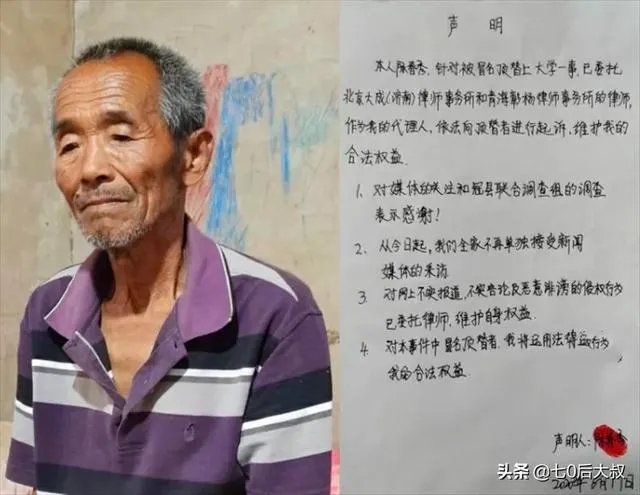 声明
本人陈春秀,针对被冒名顶替上大学一事,已委托
北京大成(济南)律师事务所和青海勤杨律师事务所的律师,
作为我的代理人,依法向顶替者进行起诉,维护我的
合法权益.
1. 对媒体的关注和冠县联合调查组的调查
表示感谢!
2. 从今日起,我们全家不再单独接受新闻
媒体的采访
3. 对网上不实报道,不实言论及恶意诽谤的侵权行为
已委托律师,维护自身权益.
4. 对本事件中冒名顶替者,我将运用法律
我的合法权益.
声明人:陈春秀
2020年6月17日
头条 @七0后大叔